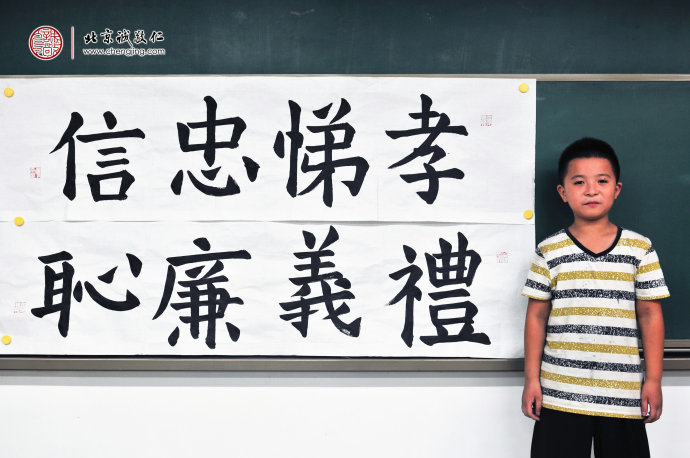 北京诚敬仁
www.chengjing.com
孝悌忠信
禮義廉恥